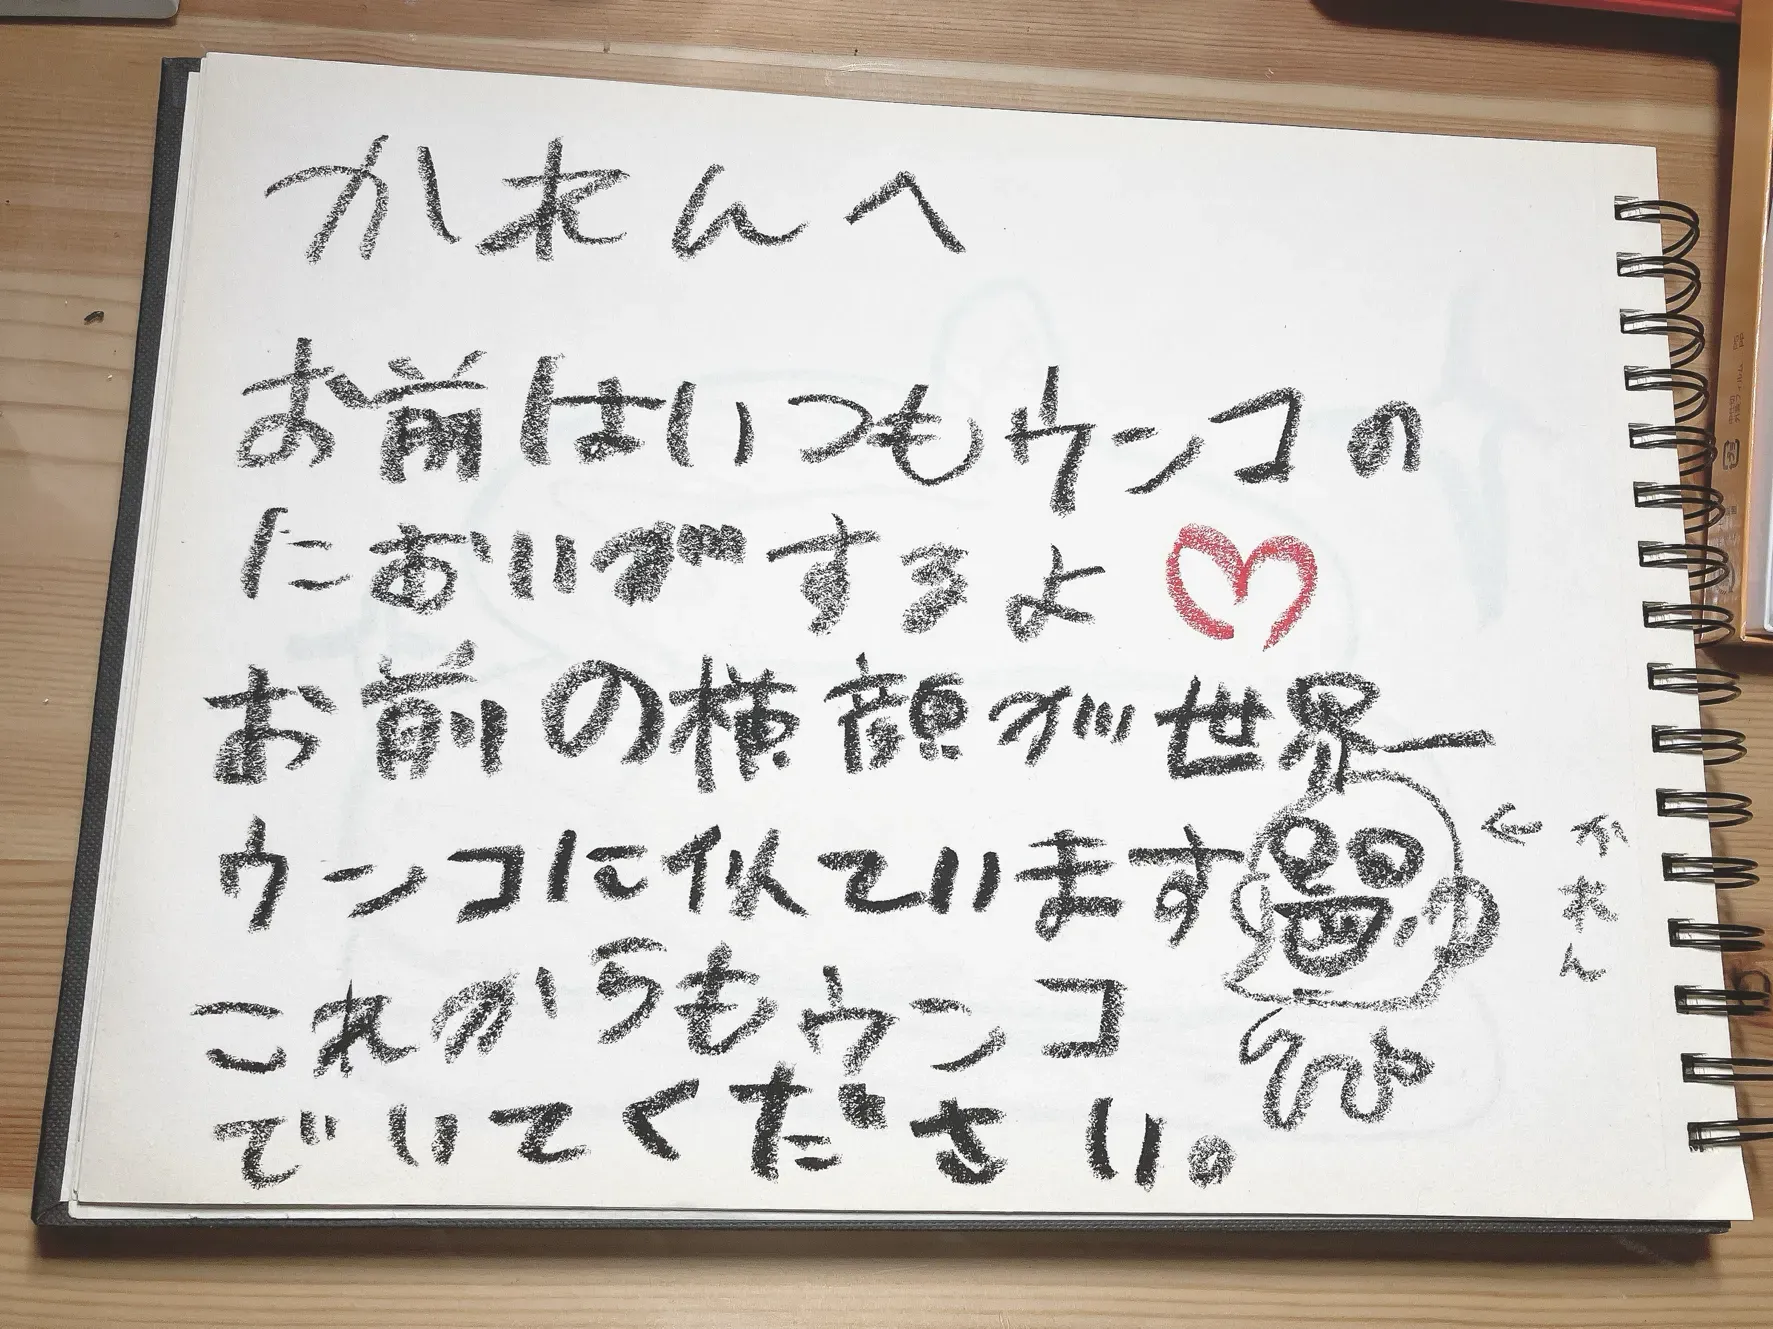 かれんへ
お前はいつもウンコの
においがするよ♡
お前の横顔が世界一
ウンコに似ています
←かれん
これからもウンコ
でいてください。